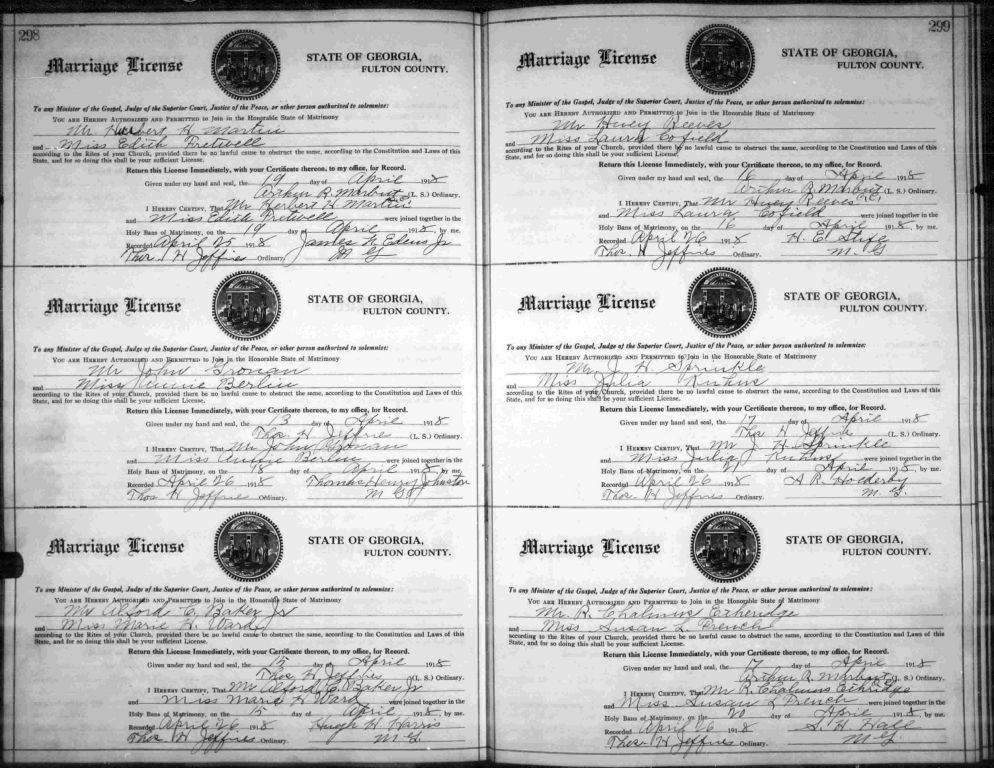 298
Marriage License
STATE OF GEORGIA,
FULTON COUNTY.
To any Minister of the Gospel, Judge of the Superior Court, Justice of the Peace, or other person authorized to solemnize:
YOU ARE HEREBY AUTHORIZED AND PERMITTED to Join in the Honorable State of Matrimony
Mr Herbert H Martin
and Miss Edith Fretwell
according to the Rites of your Church, provided there be no lawful cause to obstruct the same, according to the Constitution and Laws of this
State, and for so doing this shall be your sufficient License.
Return this License Immediately, with your Certificate thereon, to my office, for Record.
Given under my hand and seal, the 19 day of April 1918
Arthur R. Marbut (L. S.) Ordinary.
I HEREBY CERTIFY, That Mr Herbert H Martin
and Miss Edith Fretwell were joined together in the
Holy Bans of Matrimony, on the 19 day of April 1918, by me.
Recorded April 25 1918 James N Edens Jr
Thos. H Jeffries Ordinary. M G
Marriage License
STATE OF GEORGIA,
FULTON COUNTY.
To any Minister of the Gospel, Judge of the Superior Court, Justice of the Peace, or other person authorized to solemnize:
YOU ARE HEREBY AUTHORIZED AND PERMITTED to Join in the Honorable State of Matrimony
Mr John Gronan
and Miss Annie Berlin
according to the Rites of your Church, provided there be no lawful cause to obstruct the same, according to the Constitution and Laws of this
State, and for so doing this shall be your sufficient License.
Return this License Immediately, with your Certificate thereon, to my office, for Record.
Given under my hand and seal, the 13 day of April 1918
Thos H Jeffries (L. S.) Ordinary.
I HEREBY CERTIFY, That Mr John Gronan
and Miss Annie Berlin were joined together in the
Holy Bans of Matrimony, on the 18 day of April 1918, by me.
Recorded April 26 1918 Thomas Henry Johnston
Thos H Jeffries Ordinary. M G
Marriage License
STATE OF GEORGIA,
FULTON COUNTY.
To any Minister of the Gospel, Judge of the Superior Court, Justice of the Peace, or other person authorized to solemnize:
YOU ARE HEREBY AUTHORIZED AND PERMITTED to Join in the Honorable State of Matrimony
Mr Alford C. Baker Jr
and Miss Marie H. Ward
according to the Rites of your Church, provided there be no lawful cause to obstruct the same, according to the Constitution and Laws of this
State, and for so doing this shall be your sufficient License.
Return this License Immediately, with your Certificate thereon, to my office, for Record.
Given under my hand and seal, the 15 day of April 1918
Thos. H Jeffries (L. S.) Ordinary.
I HEREBY CERTIFY, That Mr Alford C. Baker Jr
and Miss Marie H Ward were joined together in the
Holy Bans of Matrimony, on the 15 day of April 1918, by me.
Recorded April 26 1918 Hugh H Harris
Thos H Jeffries Ordinary. M G.
299
Marriage License
STATE OF GEORGIA,
FULTON COUNTY.
To any Minister of the Gospel, Judge of the Superior Court, Justice of the Peace, or other person authorized to solemnize:
YOU ARE HEREBY AUTHORIZED AND PERMITTED to Join in the Honorable State of Matrimony
Mr Huey Reeves
and Miss Laura Cofield
according to the Rites of your Church, provided there be no lawful cause to obstruct the same, according to the Constitution and Laws of this
State, and for so doing this shall be your sufficient License.
Return this License Immediately, with your Certificate thereon, to my office, for Record.
Given under my hand and seal, the 16 day of April 1918
Arthur R. Marbut (L. S.) Ordinary.
I HEREBY CERTIFY, That Mr Huey Reeves
and Miss Laura Cofield were joined together in the
Holy Bans of Matrimony, on the 16 day of April 1918, by me.
Recorded April 26 1918 H. E.
Thos. H Jeffries Ordinary. M. G
Marriage License
STATE OF GEORGIA,
FULTON COUNTY.
To any Minister of the Gospel, Judge of the Superior Court, Justice of the Peace, or other person authorized to solemnize:
YOU ARE HEREBY AUTHORIZED AND PERMITTED to Join in the Honorable State of Matrimony
Mr J. H Sprinkle
and Miss Julia
according to the Rites of your Church, provided there be no lawful cause to obstruct the same, according to the Constitution and Laws of this
State, and for so doing this shall be your sufficient License.
Return this License Immediately, with your Certificate thereon, to my office, for Record.
Given under my hand and seal, the 17 day of April 1918
Thos H Jeffries (L. S.) Ordinary.
I HEREBY CERTIFY, That Mr J H Sprinkle
and Miss Julia were joined together in the
Holy Bans of Matrimony, on the 21 day of April 1918, by me.
Recorded April 26 1918 A R. Holderby
Thos. H Jeffries Ordinary. M. G.
Marriage License
STATE OF GEORGIA,
FULTON COUNTY.
To any Minister of the Gospel, Judge of the Superior Court, Justice of the Peace, or other person authorized to solemnize:
YOU ARE HEREBY AUTHORIZED AND PERMITTED to Join in the Honorable State of Matrimony
Mr. R Chalmus Etheridge
and Miss Susan L French
according to the Rites of your Church, provided there be no lawful cause to obstruct the same, according to the Constitution and Laws of this
State, and for so doing this shall be your sufficient License.
Return this License Immediately, with your Certificate thereon, to my office, for Record.
Given under my hand and seal, the 17 day of April 1918
Arthur R Marbut (L. S.) Ordinary.
I HEREBY CERTIFY, That Mr R. Chalmus Etheridge
and Miss Susan L French were joined together in the
Holy Bans of Matrimony, on the 20 day of April 1918, by me.
Recorded April 26 1918 S. H Hale
Thos H Jeffries Ordinary. M G.